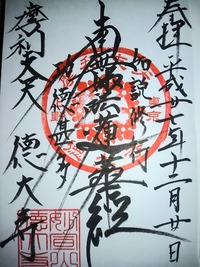 奉拝 平成廿七年十二月廿日
如説修行
南無妙法蓮華経
功徳甚多
摩利支天 徳大寺